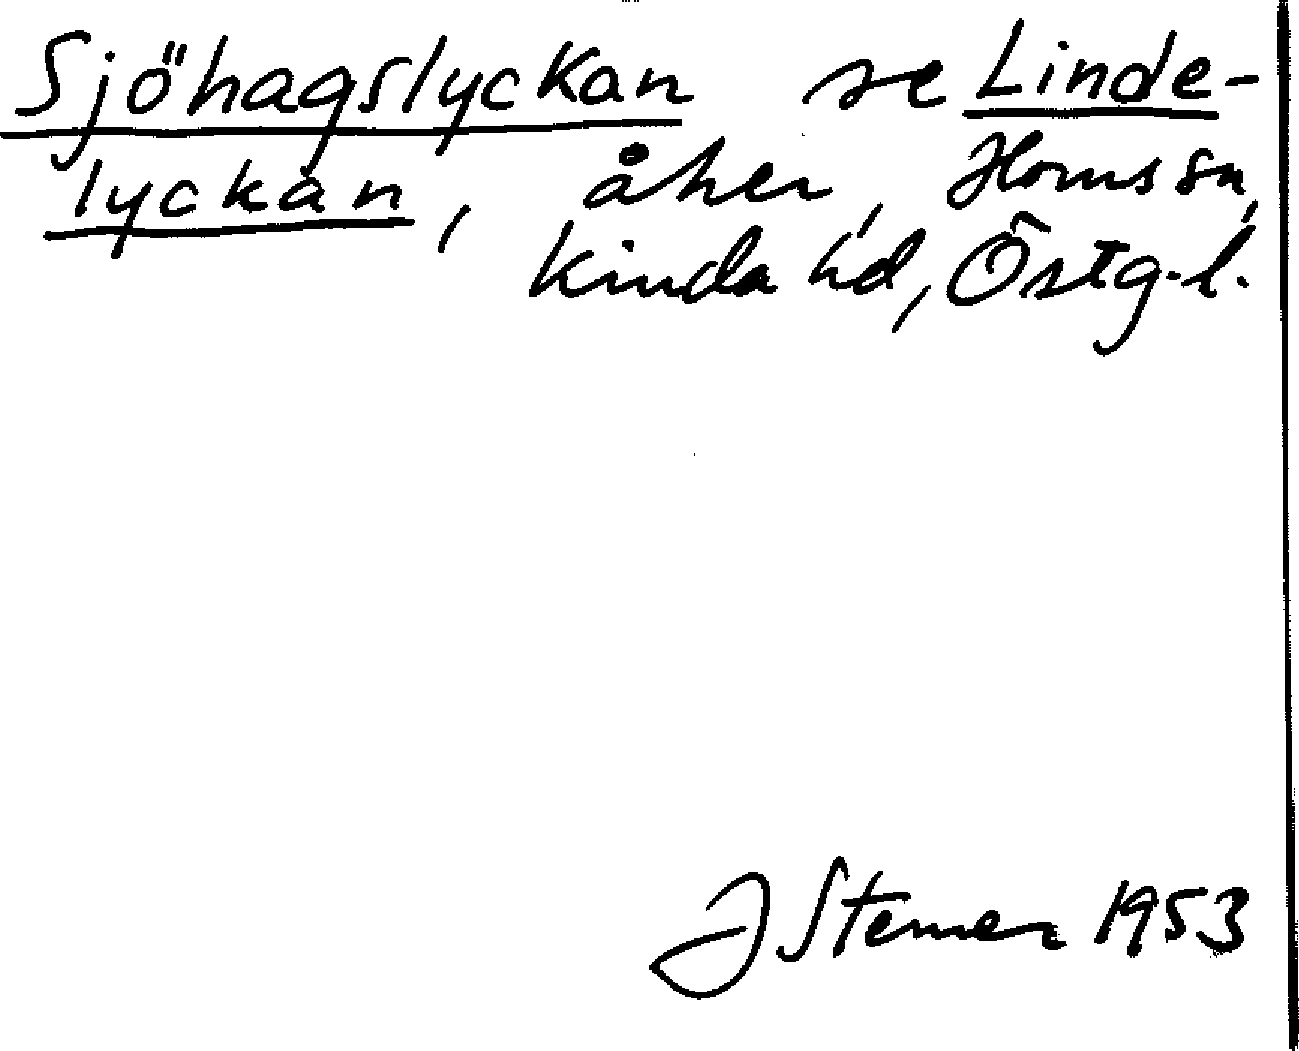 Sjöhagslyckan se Linde-
lyckan, åker, Horns sn,
Kinda hd, Östg. l.
J Sterner 1953